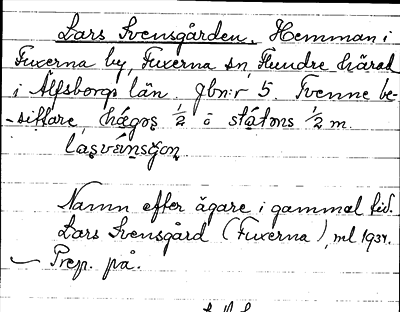 Lars Svensgården. Hemman i
Fuxerna by, Fuxerna sn, Flundre härad
i Älfsborgs län. Jbn:r 5. Tvenne be-
sittare, hägos 1/2 o státons 1/2 m.
lasvänsgon
Namn efter ägare i gammal tid.
Lars Svensgård (Fuxerna), ml 1934.
— Prep. på.